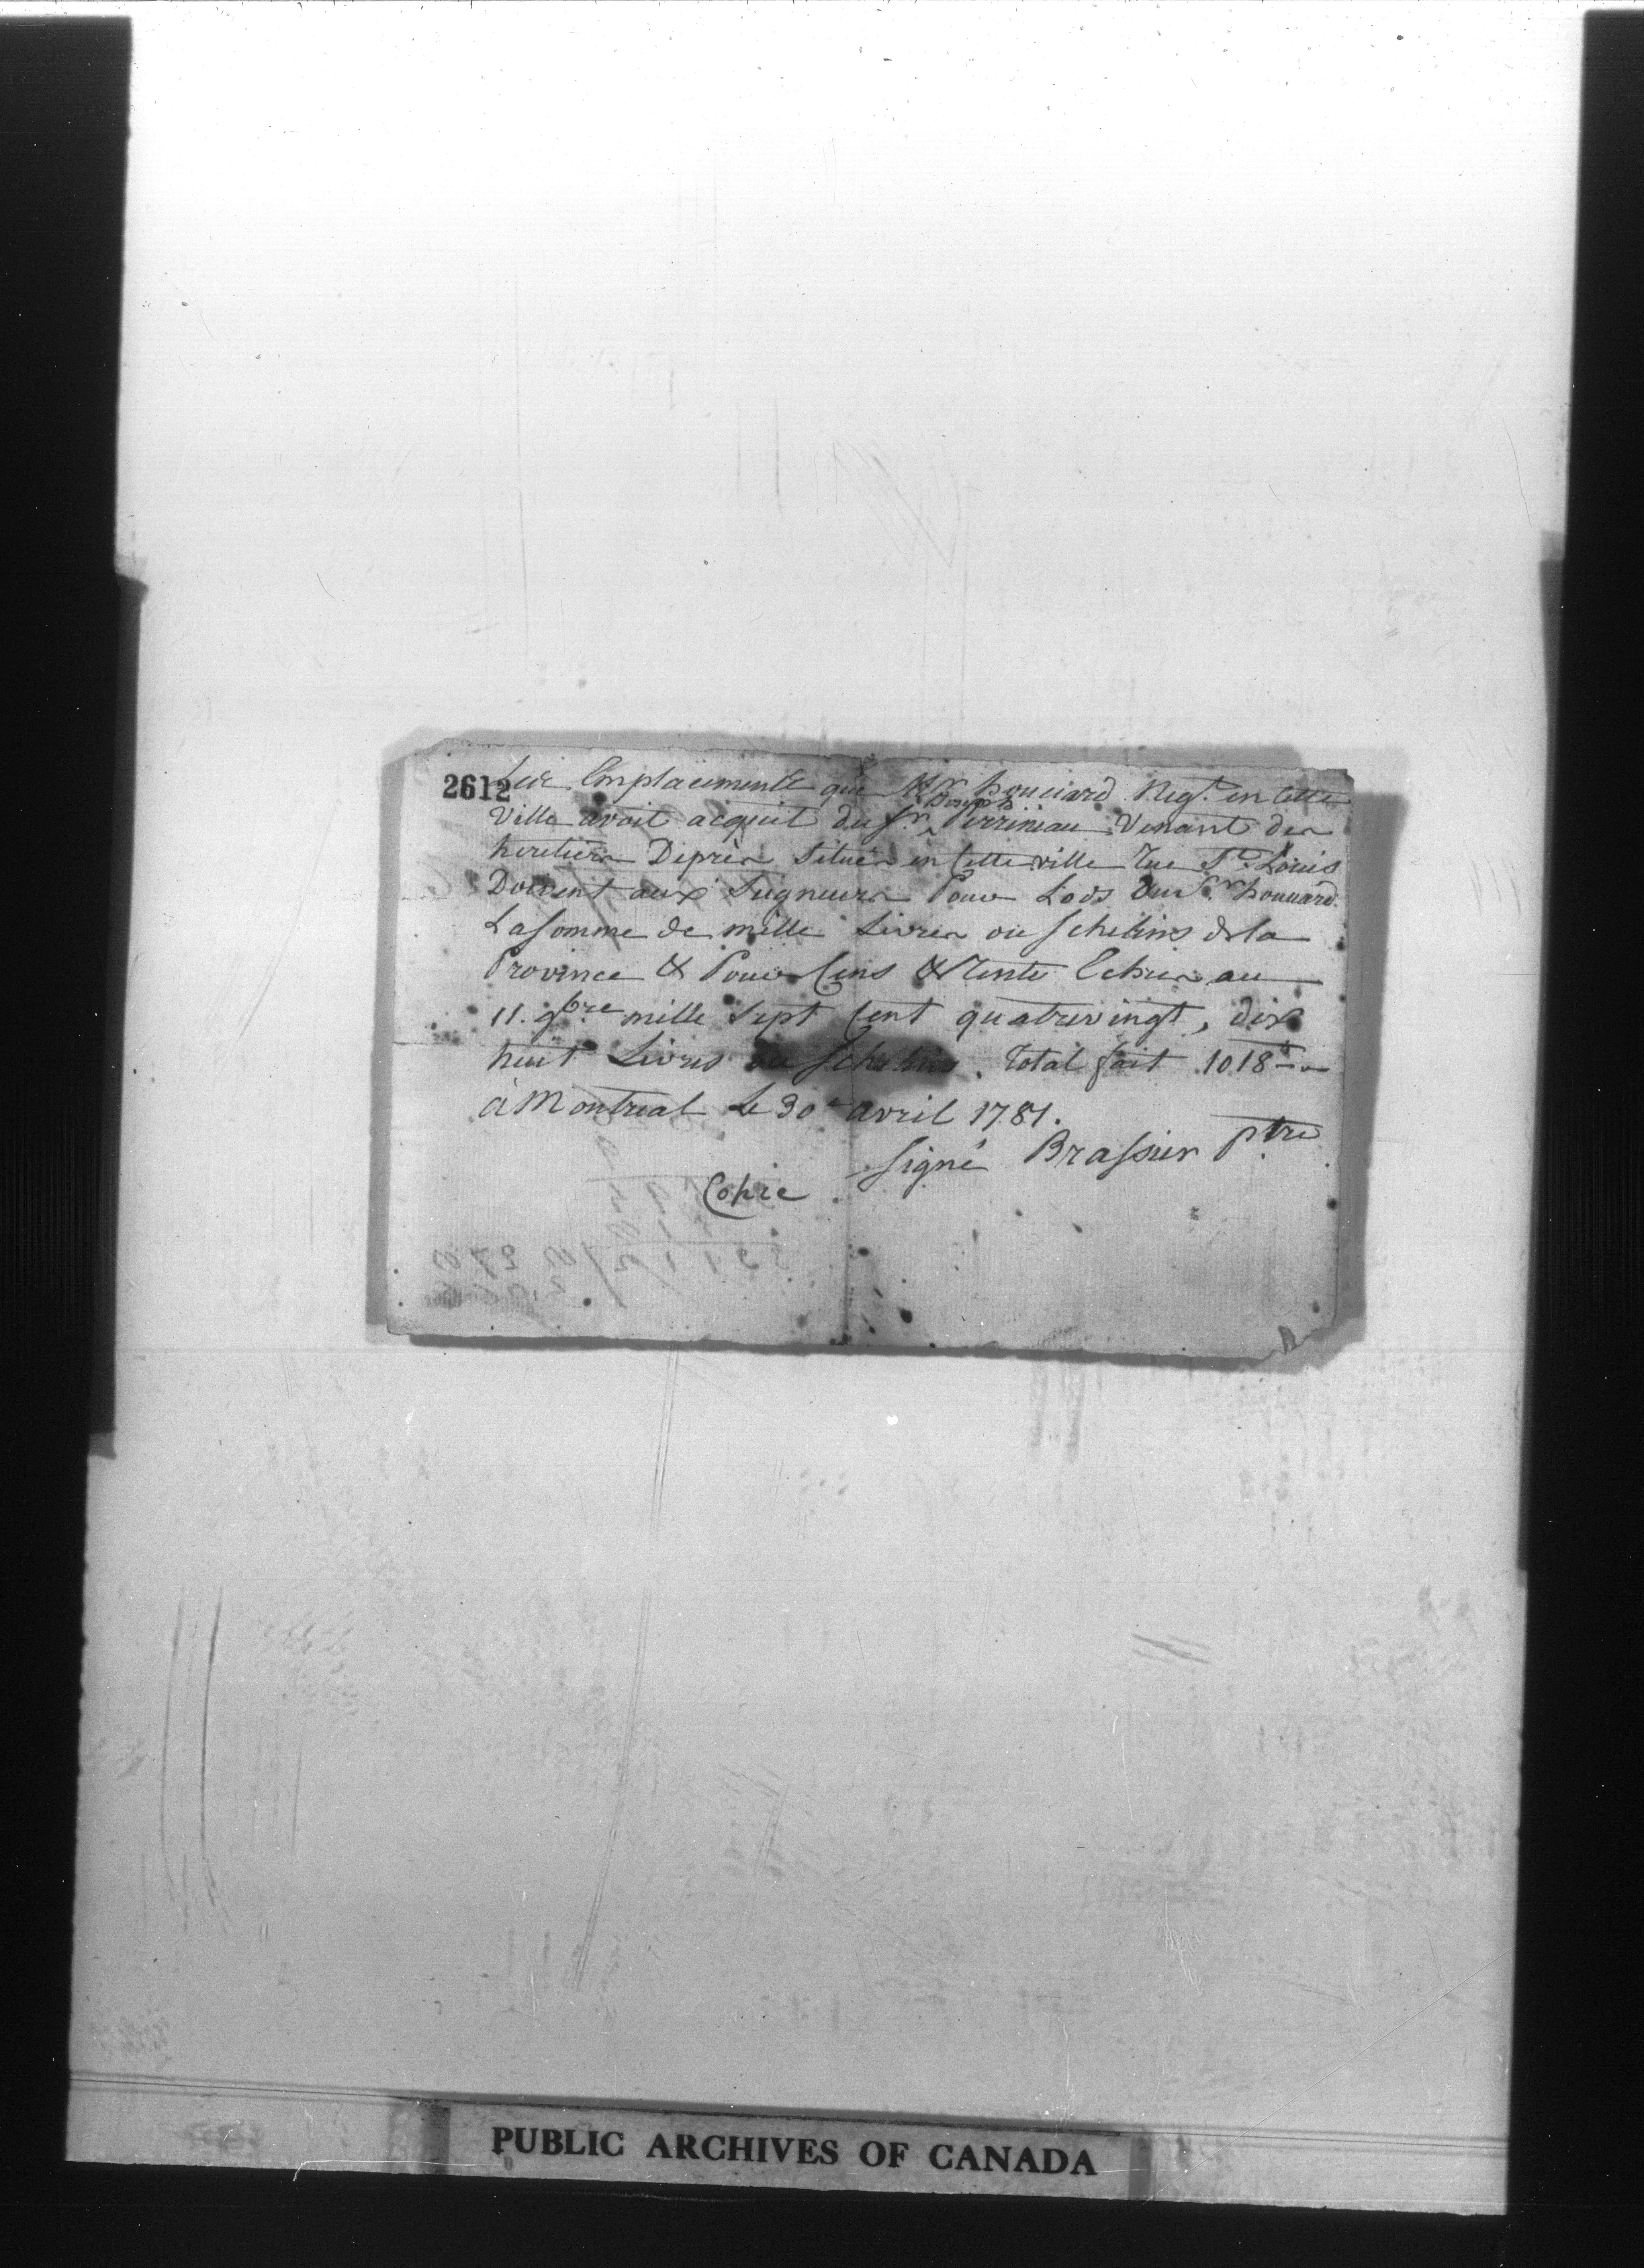 2612
Les Emplacements que Mr houvard Neg.t en Cette
Ville avoit acquit du Sr. Joseph Perrineau Venant des
heritiers Deprès Situés en Cette ville Rue St. Louis
Doivent aux Seigneurs Pour Lods du Sr. houvard
La Somme de mille Livres ou Schelins de la
Province & Pour Cens & Rente Echus au
11. 9bre mille Sept Cent quatrevingt, dix
huit Livres ou Schelins. Total fait 1018
à Montreal Le 30e avril 1781.
Signé Brassier Ptre
Copie
PUBLIC ARCHIVES OF CANADA